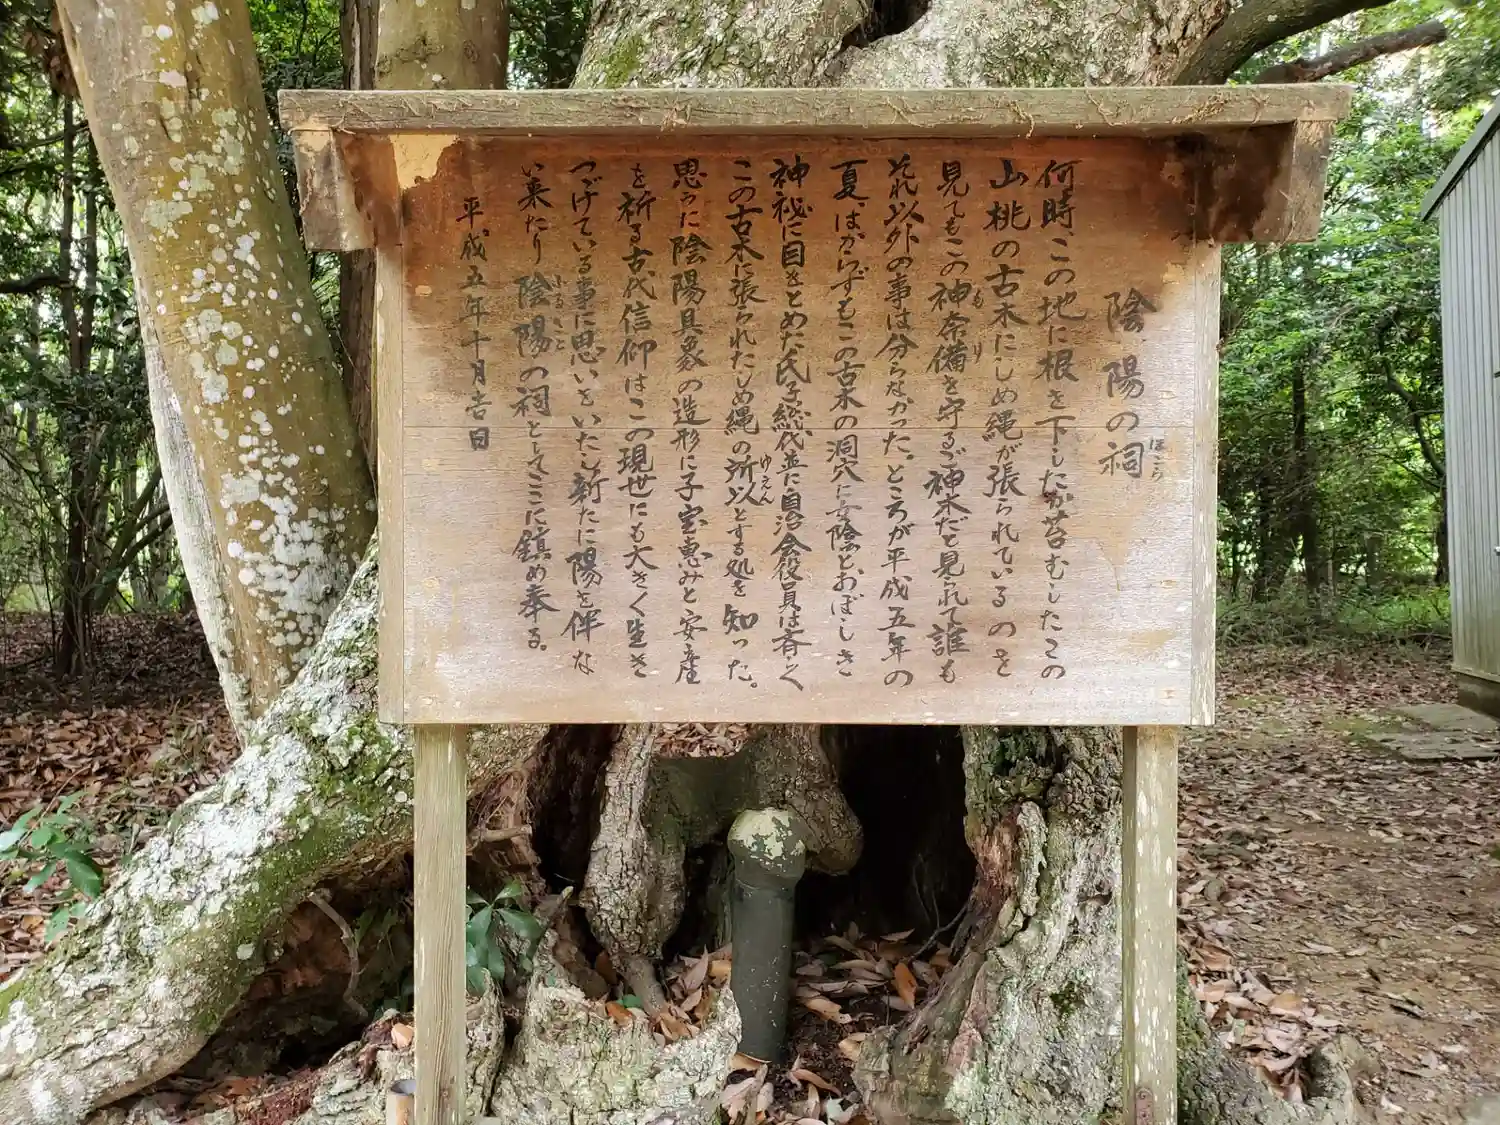 陰陽の祠
ほこら
何時この地に根を下したか苔むしたこの
山桃の古木にしめ縄が張られているのを
見てもこの神奈備を守るご神木だと見られて誰も
もり
それ以外の事は分らなかった。ところが平成五年の
夏、はからずもこの古木の洞穴に女陰とおぼしき
神秘に目をとめた氏子総代並に自治会役員は斉しく
この古木に張られたしめ縄の所以とする処を知った。
ゆえん
思うに陰陽具象の造形に子宝恵みと安産
を祈る古代信仰はこの現世にも大きく生き
つづけている事に思いをいたし新たに陽を伴な
い来たり陰陽の祠としてここに鎮め奉る。
平成五年十月吉日